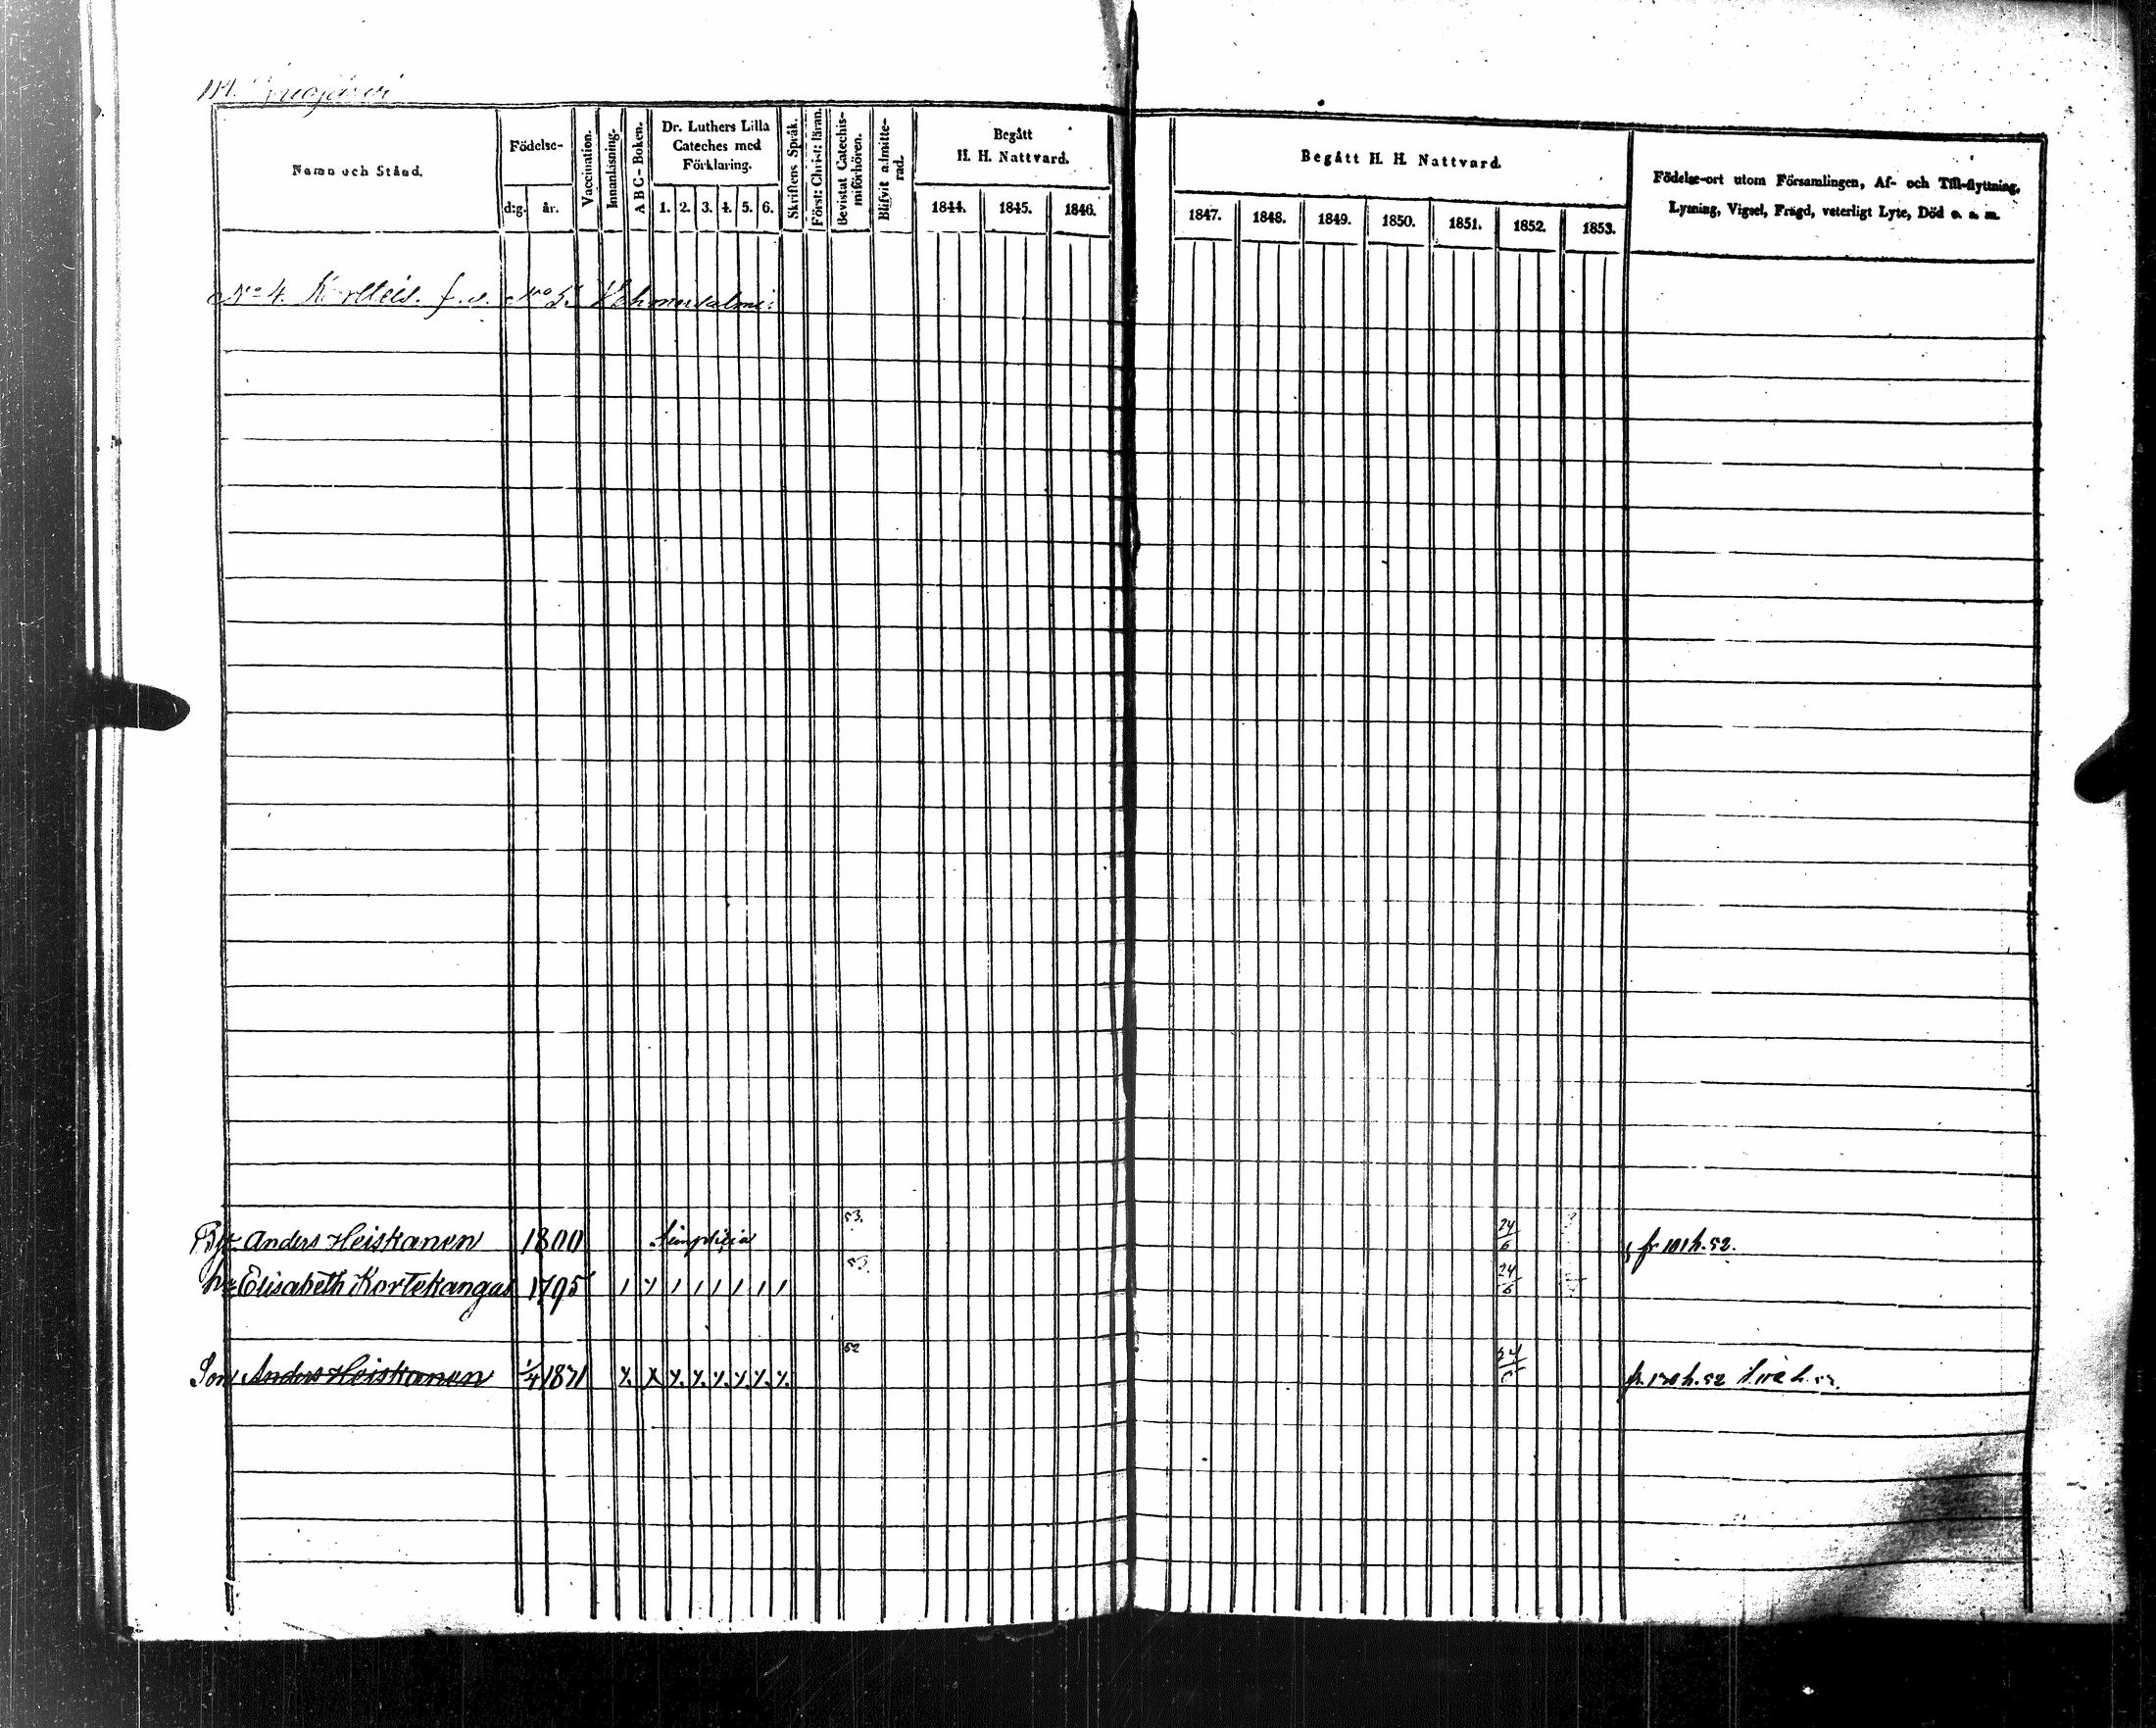 Namn och Stånd.
Födelse-
d:g. år.
Vaccination.
Innanläsning.
A B C - Boken.
Dr. Luthers Lilla
Cateches med
Förklaring.
1. 2. 3. 4. 5. 6.
Skriftens Språk.
Först: Christ: läran.
Bevistat Catechis-
miförhören.
Blifvit admitte-
rad.
Begått
H. H. Nattvard.
1844. 1845. 1846.
Begått H. H. Nattvard.
1847. 1848. 1849. 1850. 1851. 1852. 1853.
Födelse-ort utom Församlingen, Af- och Till-flyttning,
Lysning, Vigsel, Frägd, veterligt Lyte, Död o. s. m.
No 4. f. d. No
53.
Anders Heiskanen 1800 Simplicia 24/6 fr 101 h. 52.
53.
hu Elisabeth Kortekangas 1795 24/6
52
Son Anders Heiskanen 1/4 1831 fr. h. 52